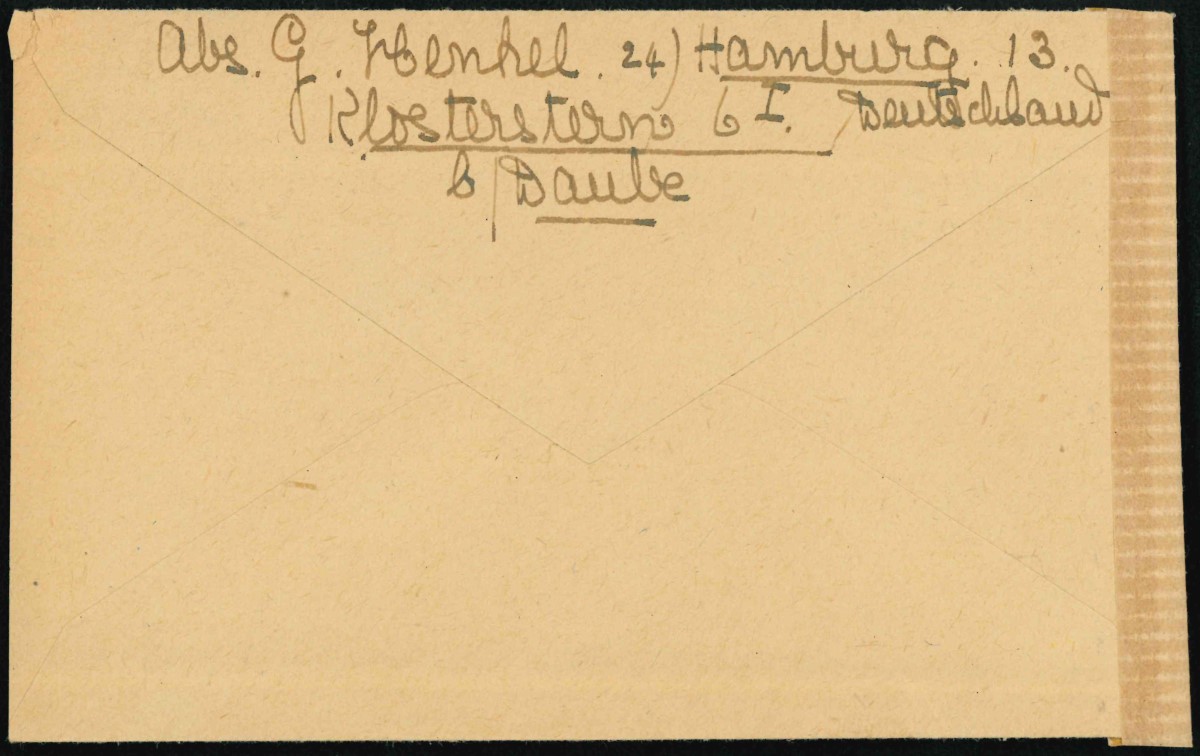 Abs. G. Henkel. 24) Hamburg. 13.
Klosterstern 6 I. Deutschland
b/Daube